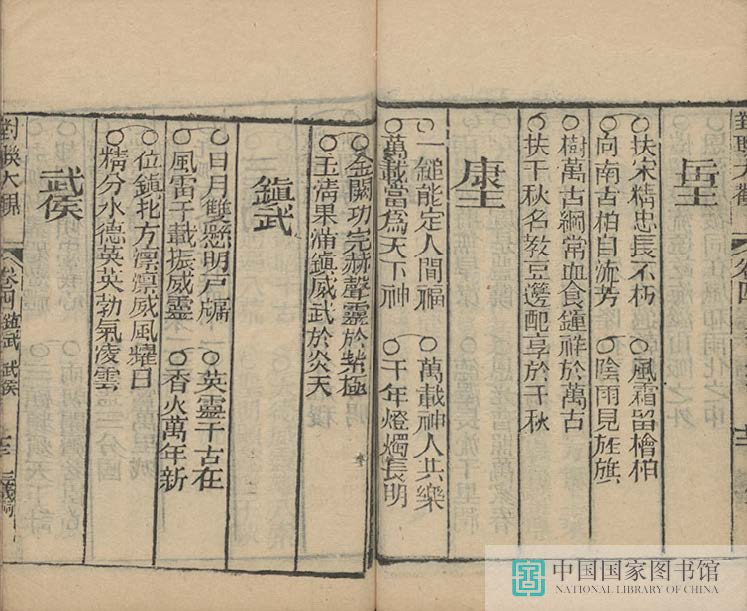 岳王
扶宋精忠長不朽 風霜留檜柏
向南古柏自流芳 陰雨見旌旗
樹萬古綱常血食鍾祥於萬古
扶千秋名教豆籩配享於千秋
康王
一鎚能定人間福 萬載神人共樂
萬載當爲天下神 千年燈燭長明
金闕功完赫聲靈於紫極
玉清果滿鎮威武於炎天
鎮武
日月雙懸明戶牖 英靈千古在
風雷千載振威靈 香火萬年新
位鎮北方凛凛威風耀日
精分水德英英勃氣凌雲
武侯
對聯大觀 卷四 鎮武 武侯
中国国家图书馆
NATIONAL LIBRARY OF CHINA